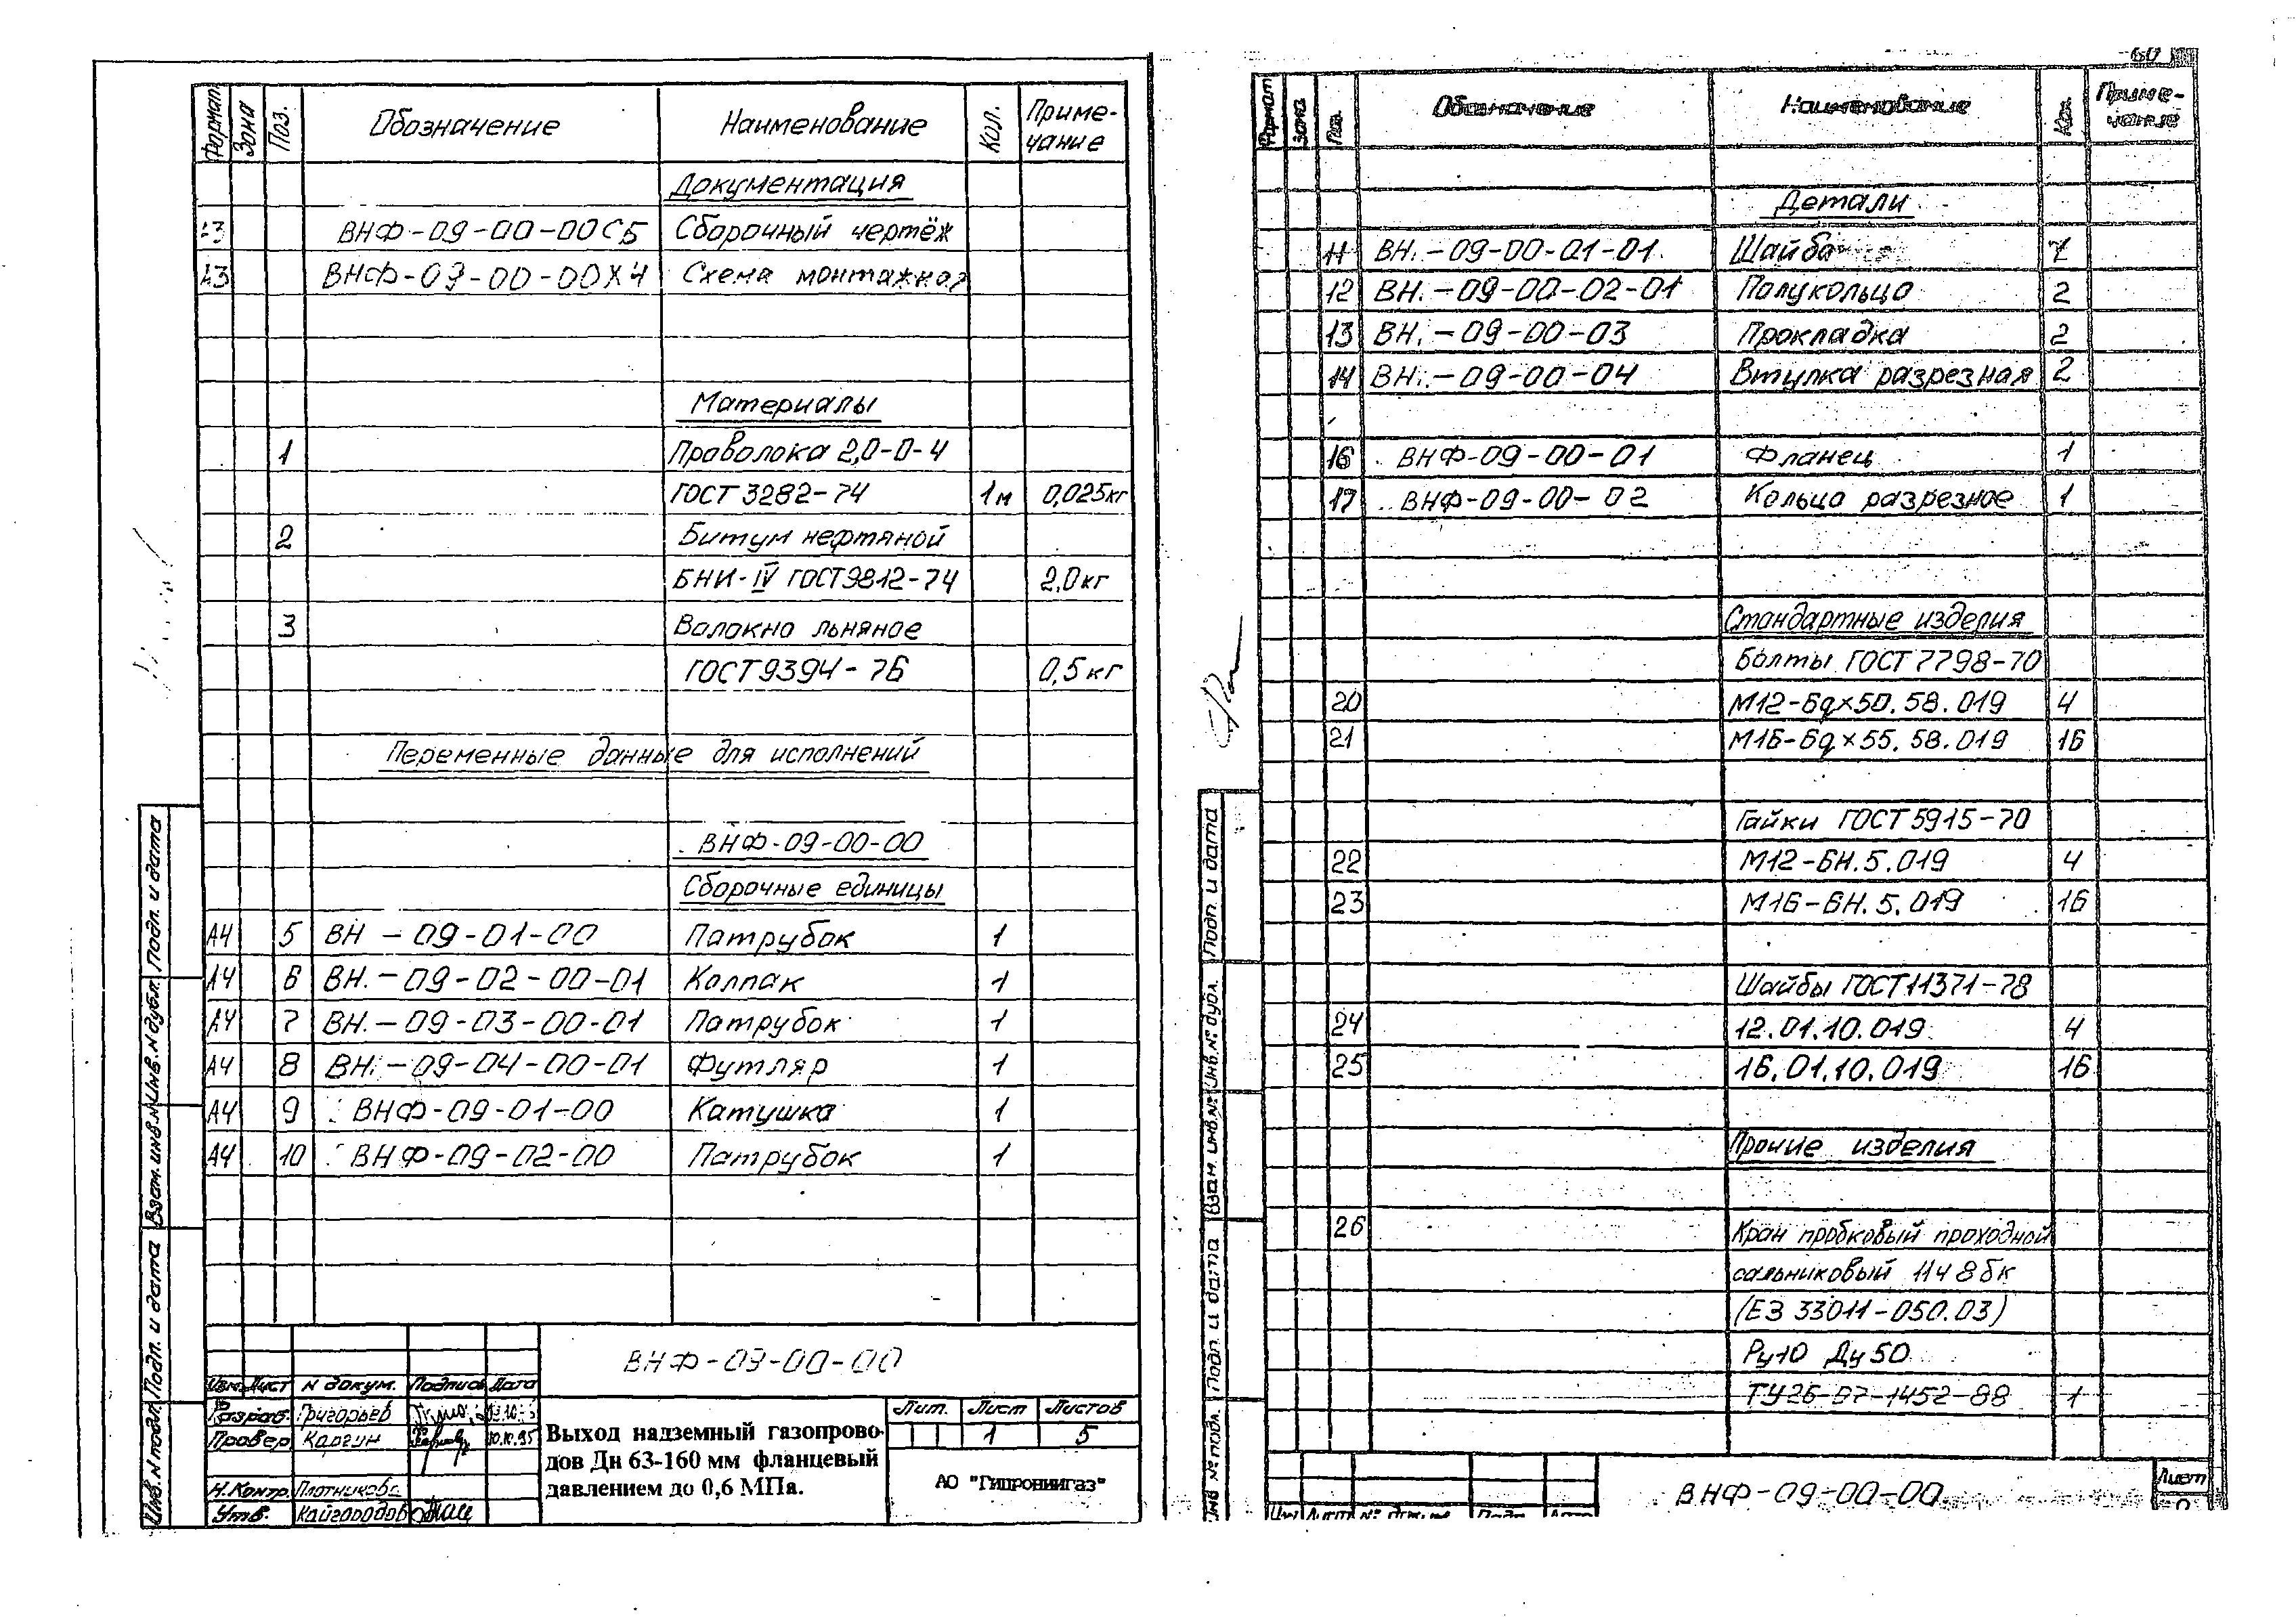 Формат Зона Поз. Обозначение Наименование Кол. Приме-
чание
Документация
ВНФ-09-00-00СБ Сборочный чертёж
А3 ВНФ-09-00-00Х4 Схема монтажная
Материалы
1 Проволока 2,0-0-4
ГОСТ 3282-74 1м 0,025кг
2 Битум нефтяной
БНИ-IV ГОСТ 9812-74 2,0кг
3 Волокно льняное
ГОСТ 9394-76 0,5кг
Переменные данные для исполнений
ВНФ-09-00-00
Сборочные единицы
А4 5 ВН-09-01-00 Патрубок 1
А4 6 ВН.-09-02-00-01 Колпак 1
А4 7 ВН.-09-03-00-01 Патрубок 1
А4 8 ВН.-09-04-00-01 Футляр 1
А4 9 ВНФ-09-01-00 Катушка 1
А4 10 ВНФ-09-02-00 Патрубок 1
Инв.N подл. Подп. и дата Взам.инв.N Инв.N дубл. Подп. и дата
ВНФ-09-00-00
Изм. Лист N докум. Подпись Дата
Разраб. Григорьев
Провер. Каргин 10.10.95
Н.Контр. Плотникова
Утв. Кайгородов
Выход надземный газопрово-
дов Дн 63-160 мм фланцевый
давлением до 0,6 МПа.
Лит. Лист Листов
1 5
АО "Гипрониигаз"
60
Формат Зона Поз. Обозначение Наименование Кол. Приме-
чание
Детали
11 ВН.-09-00-01-01 Шайба
12 ВН.-09-00-02-01 Полукольцо 2
13 ВН.-09-00-03 Прокладка 2
14 ВН.-09-00-04 Втулка разрезная 2
16 ВНФ-09-00-01 Фланец 1
17 ВНФ-09-00-02 Кольцо разрезное 1
Стандартные изделия
Болты ГОСТ 7798-70
20 М12-6gх50.58.019 4
21 М16-6gх55.58.019 16
Гайки ГОСТ 5915-70
22 М12-6Н.5.019 4
23 М16-6Н.5.019 16
Шайбы ГОСТ 11371-78
24 12.01.10.019 4
25 16.01.10.019 16
Прочие изделия
26 Кран пробковый проходной
сальниковый 11ч8бк
(ЕЗ 33011-050.03)
Ру10 Ду50
ТУ26-07-1452-88 1
Инв № подл. Подп. и дата Взам. инв.№ Инв.№ дубл. Подп. и дата
ВНФ-09-00-00
Лист